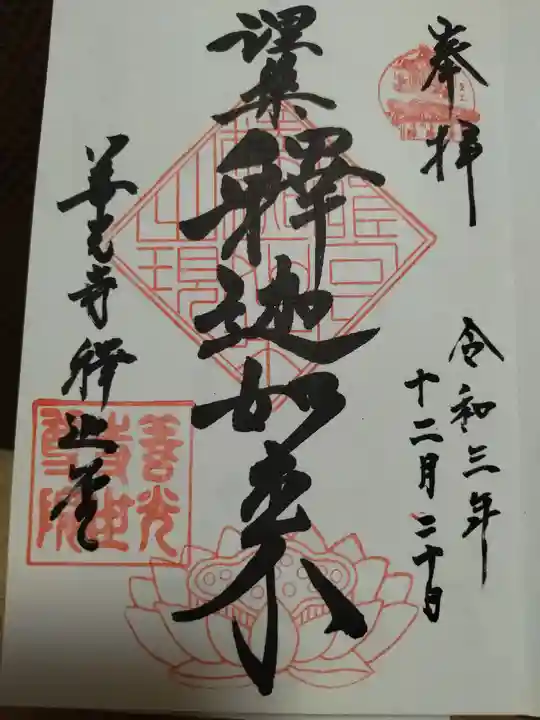 奉拝
令和三年
十二月二十日
釋迦如来
善光寺釋迦堂
善光
寺世
尊院